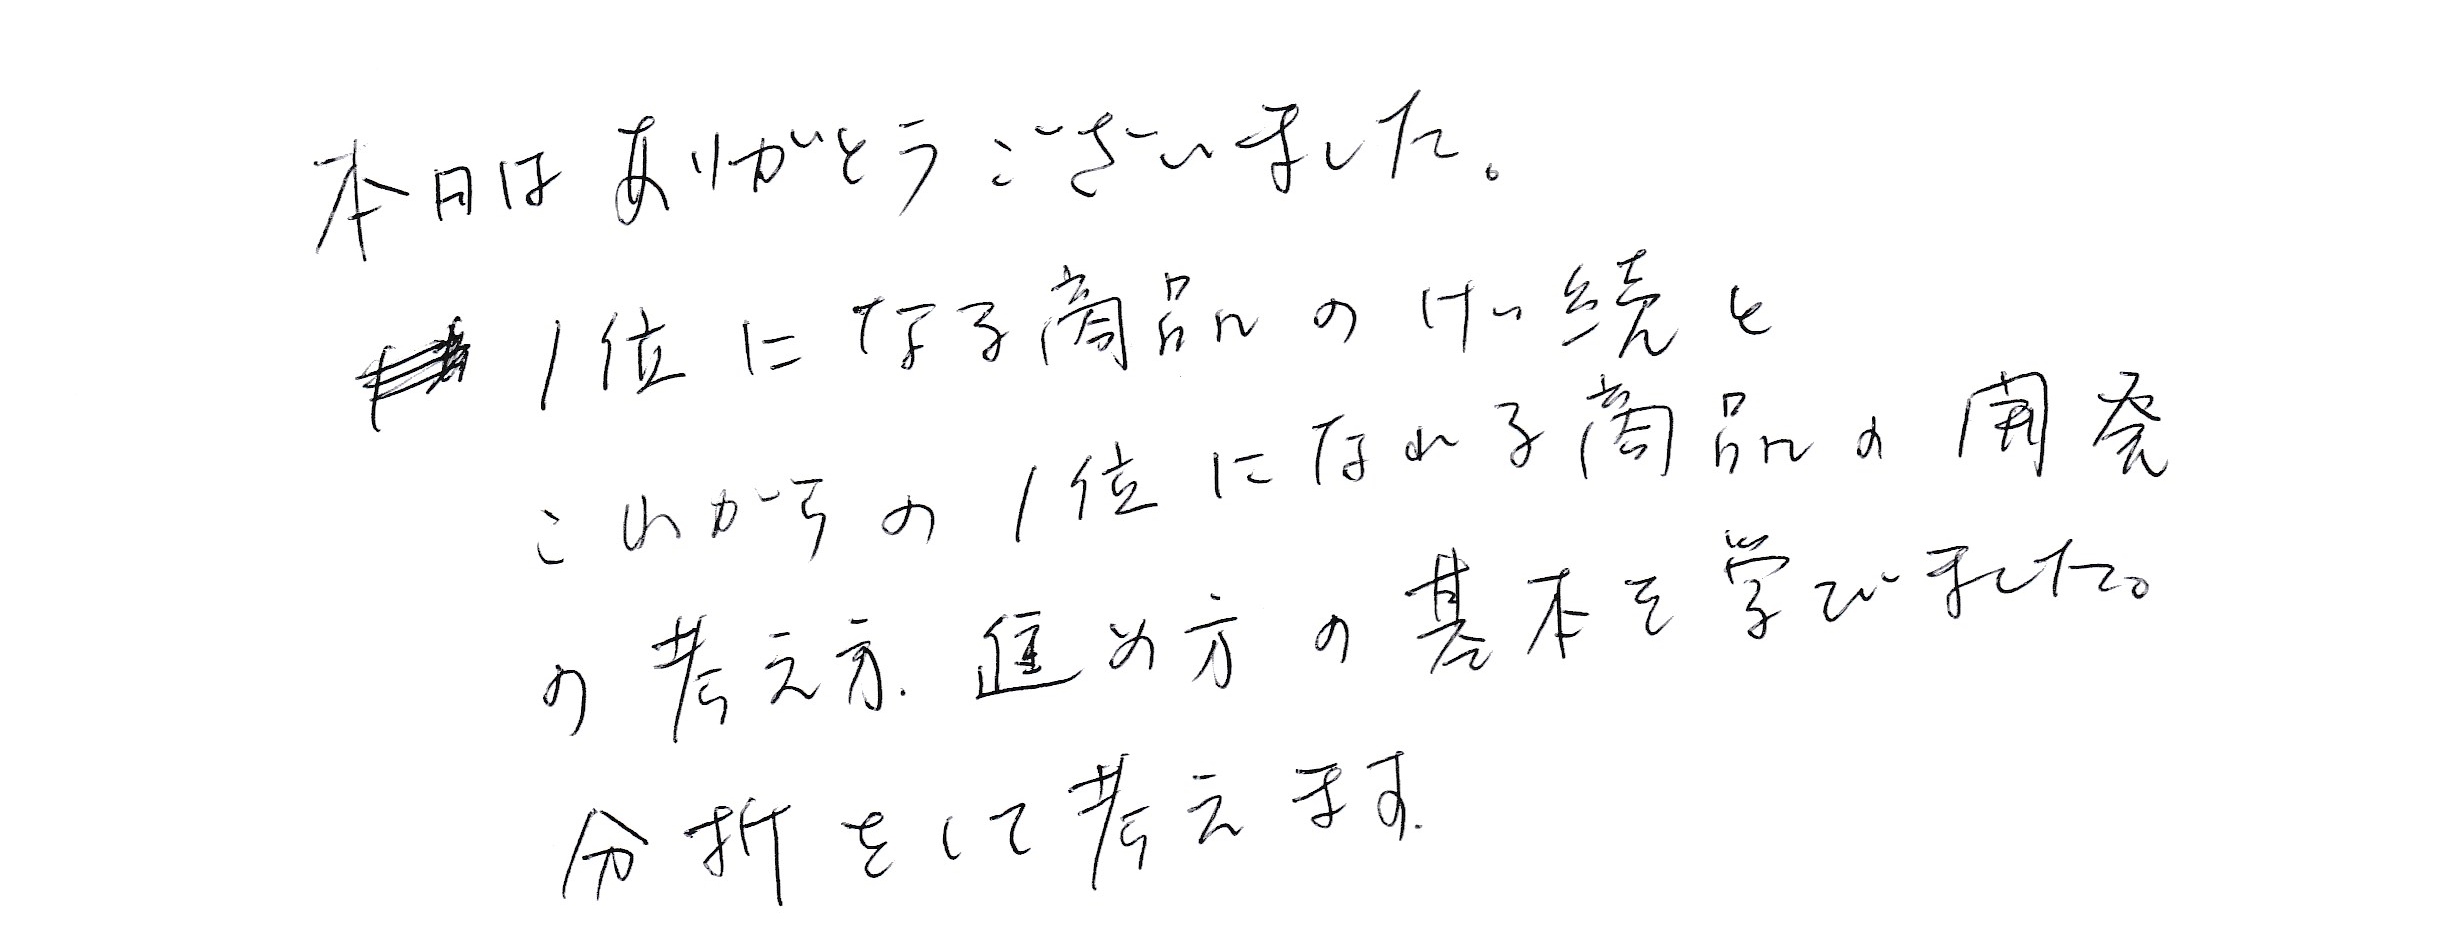 本日はありがとうございました。
1位になる商品のけい続と
これからの1位になれる商品の開発
の考え方.進め方の基本を学びました。
分析をして考えます.